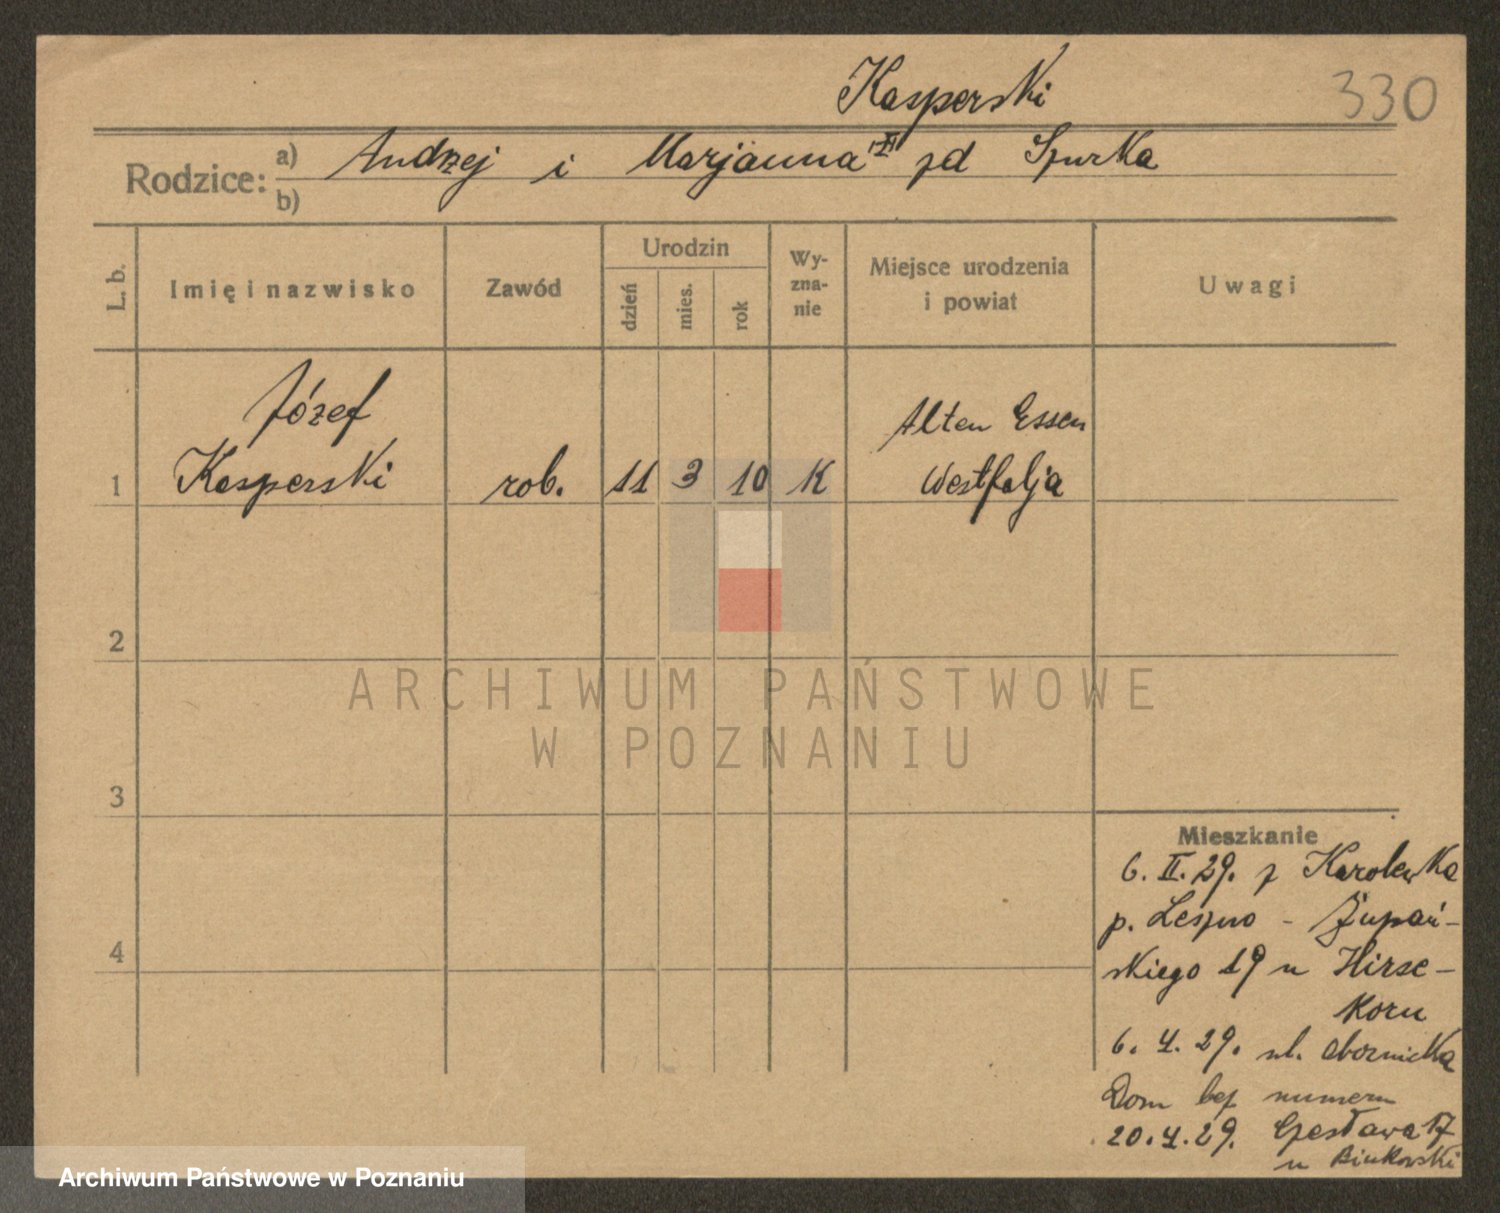 Kasperski
330
Rodzice: a) Andrzej i Marjanna zd Spurka
b)
L. b.
Imię i nazwisko
Zawód
Urodzin
dzień
mies.
rok
Wy-
zna-
nie
Miejsce urodzenia
i powiat
Uwagi
Józef
Kasperski
1
rob.
11
3
10
K
Alten Essen
Westfalja
2
ARCHIWUM PAŃSTWOWE
W POZNANIU
3
4
Mieszkanie
6. II. 29. z Karolewka
p. Leszno - Żupań-
skiego 19 u Hirse-
Koru
6. 4. 29. ul. Obornicka
Dom bez numeru
20. 4. 29. Czesława 17
u Binkowski
Archiwum Państwowe w Poznaniu